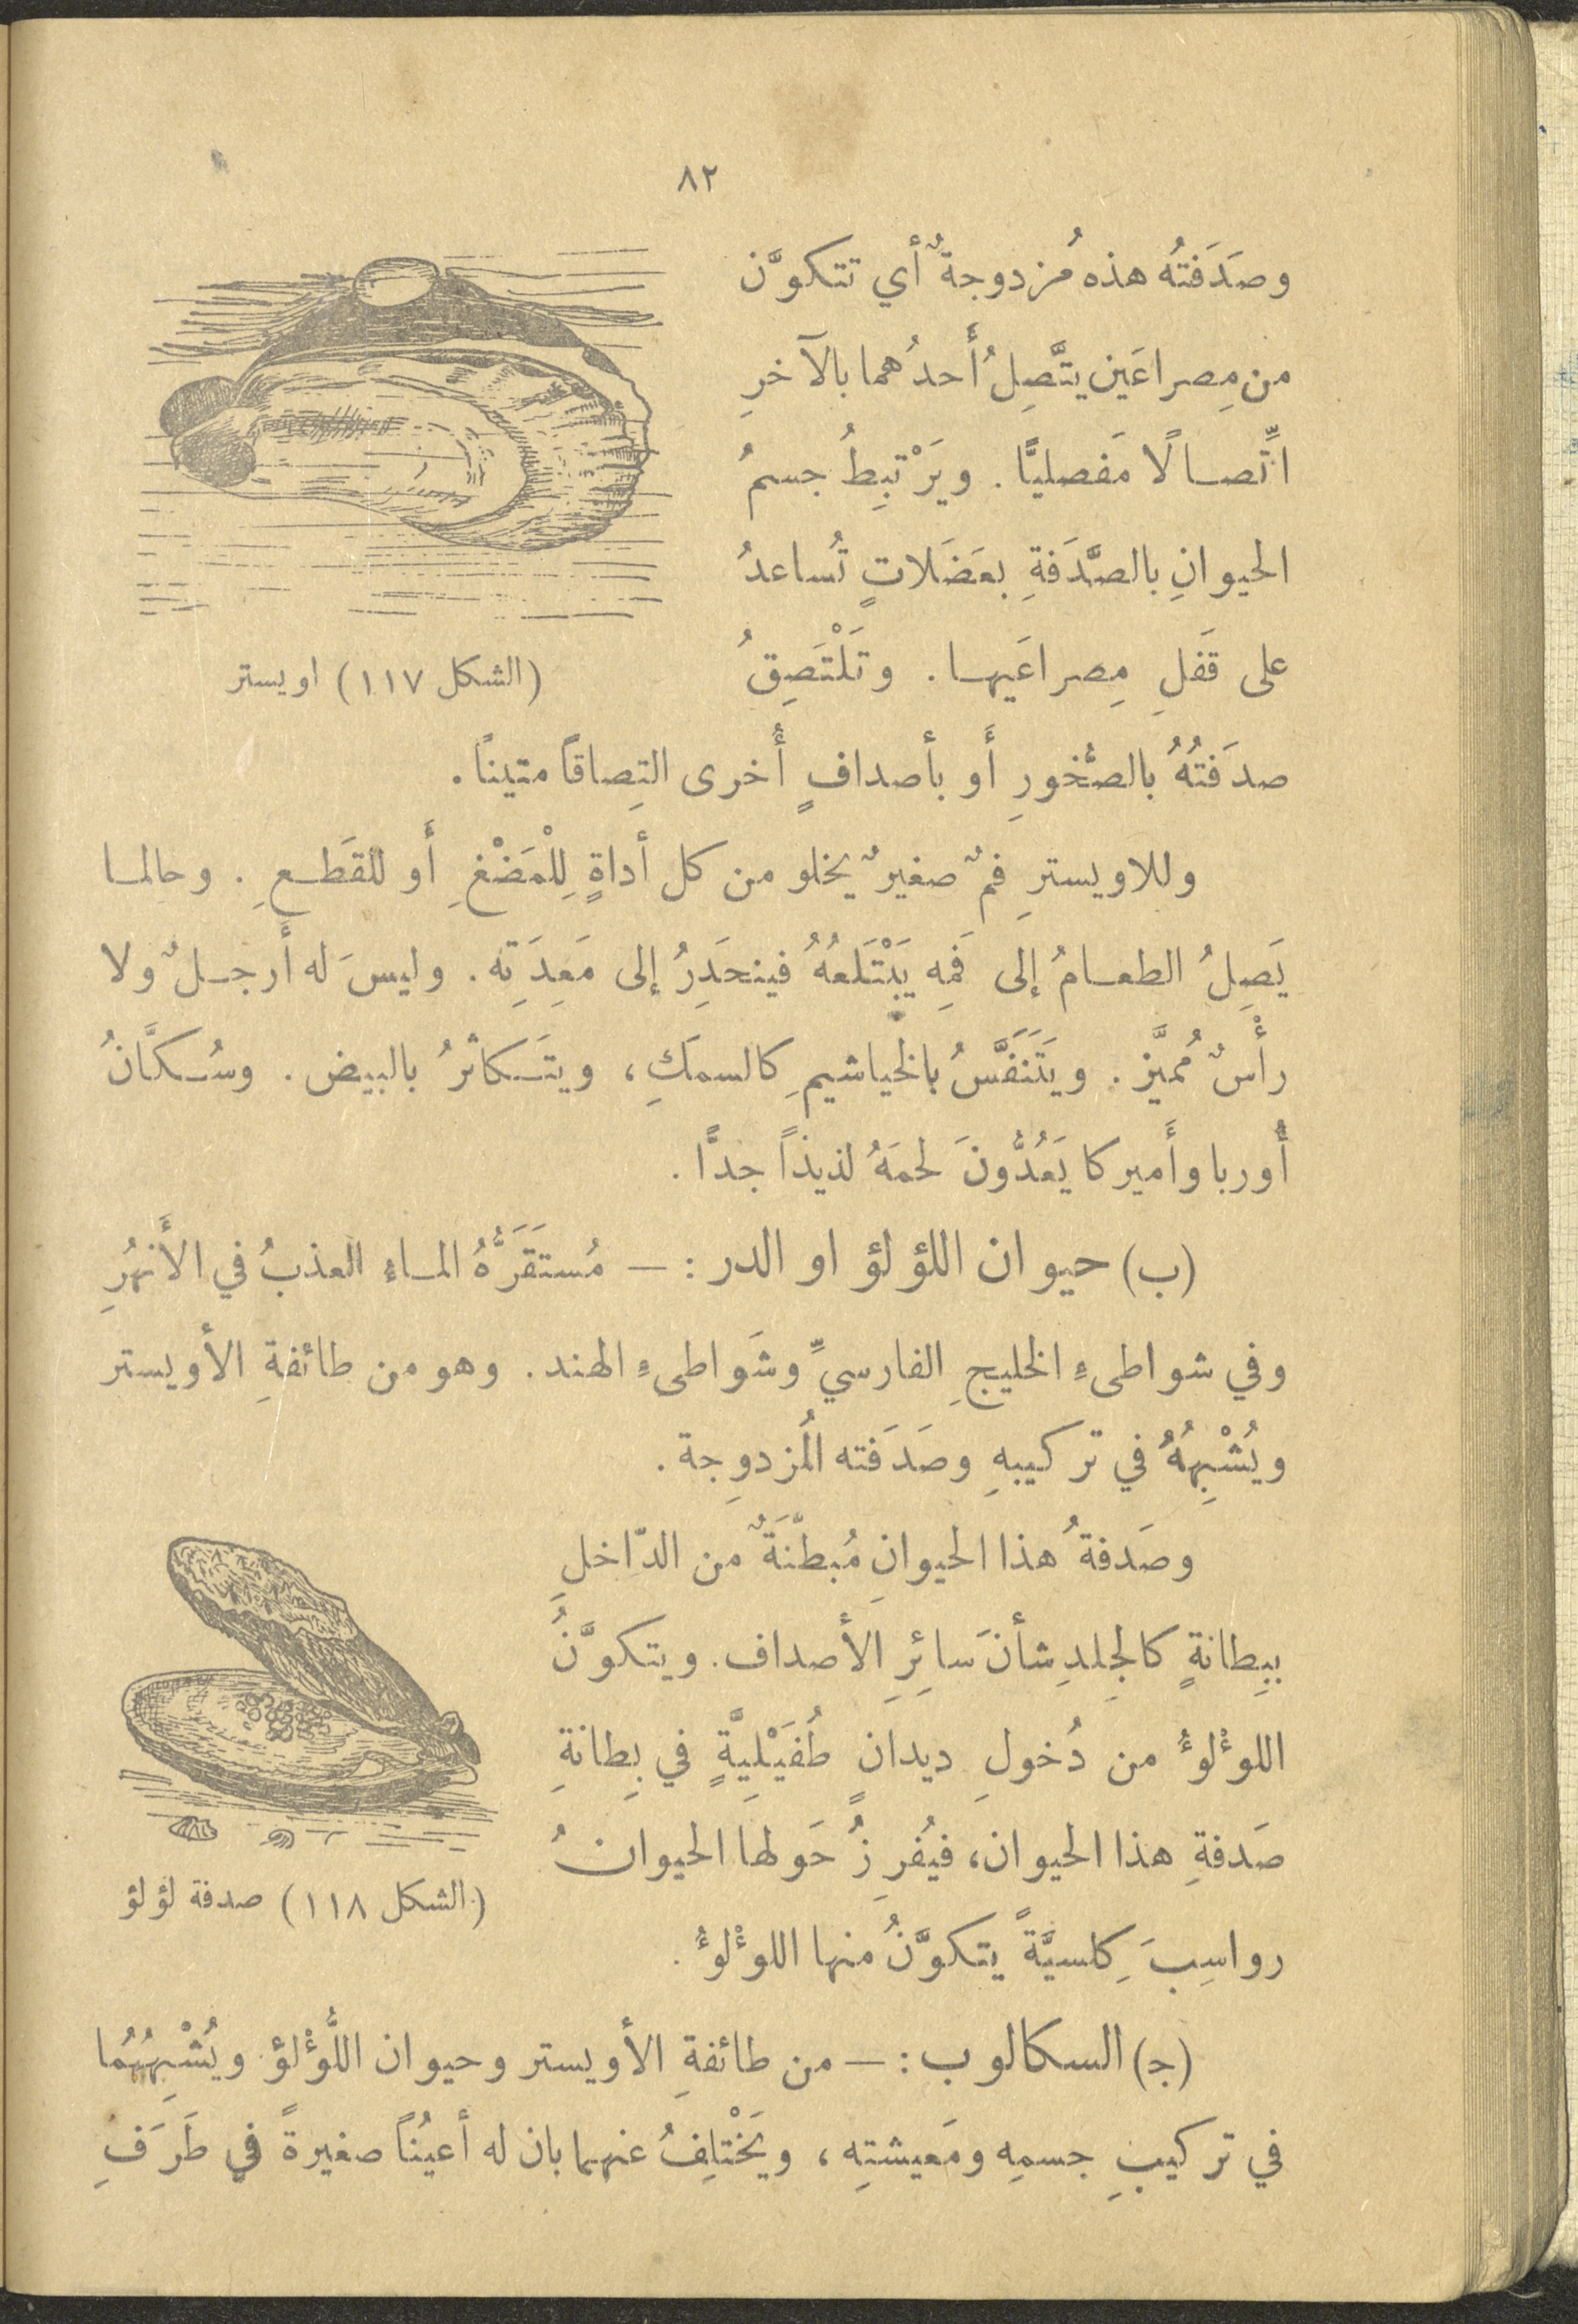 ٨٢
وصَدَفتُه هذه مُزدوجةٌ أي تتكوَّن
من مِصراعَين يتَّصِلُ أَحدُهما بالآخرِ
اتِّصالًا مَفصليًّا . ويَرْتبِطُ جسمُ
الحيوانِ بالصَّدَفةِ بعَضَلاتٍ تُساعدُ
على قَفلِ مِصراعَيها . وتَلْتَصِقُ
(الشكل ١١٧) اويستر
صدَفتُهُ بالصُّخورِ أَو بأصدافٍ أُخرى التِصاقاً متيناً .
وللاويسترِ فمٌ صغيرٌ يخلو من كل أداةٍ لِلْمَضْغِ أَو للقَطعِ . وحالما
يَصِلُ الطعامُ إلى فَمِه يَبْتَلعُهُ فينحَدِرُ إلى مَعِدَتِه . وليسَ له أَرجلٌ ولا
رأْسٌ مُميَّز . ويَتَنَفَّسُ بالخياشيمِ كالسمَكِ ، ويتَكاثرُ بالبيض . وسُكَّانُ
أُوربا وأَميركا يَعُدُّونَ لحمَهُ لذيذاً جدًّا .
(ب) حيوان اللؤلؤ او الدر : — مُستَقَرُّهُ الماء العذبُ في الأَنهُرِ
وفي شواطىءِ الخليجِ الفارسيِّ وشَواطىءِ الهند . وهو من طائفةِ الأويستر
ويُشْبِهُهُ في تركيبهِ وصَدَفته المُزدوِجة .
وصَدفةُ هذا الحيوانِ مُبطَّنَةٌ من الدّاخلِ
ببِطانةٍ كالجِلدِ شأنَ سائِرِ الأصداف . ويتكوَّنُ
اللوءْلوءُ من دُخولِ ديدانٍ طُفَيْليَّةٍ في بِطانةِ
صَدفةِ هذا الحيوان، فيُفرِزُ حَولها الحيوانُ
(الشكل ١١٨) صدفة لؤلؤ
رواسِبَ كِلسيَّةً يتكوَّنُ منها اللوءْلوءُ .
(ج) السكالوب : — من طائفةِ الأويستر وحيوان اللُّؤْلؤ ويُشْبِهُهُما
في تركيبِ جسمِه ومَعيشتِه ، ويَخْتلِفُ عنهما بان له أعيُناً صغيرةً في طَرَفِ